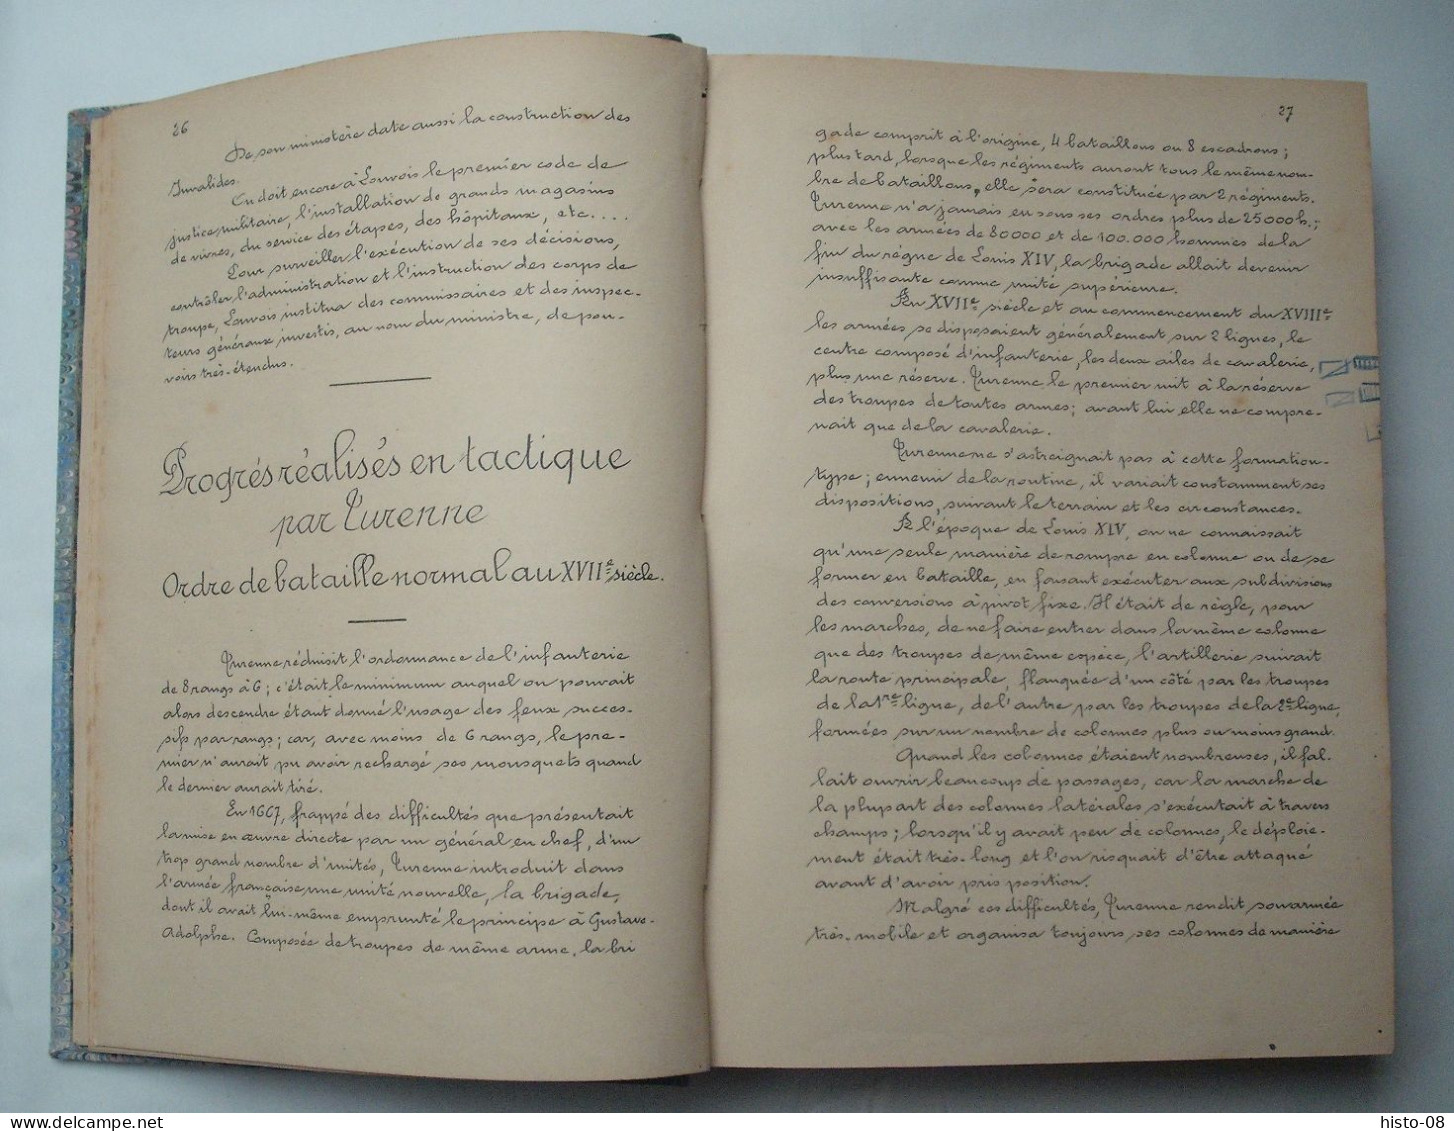 26
De son ministère date aussi la construction des
Invalides.
On doit encore à Louvois le premier code de
justice militaire, l'installation de grands magasins
de vivres, du service des étapes, des hôpitaux, etc....
Pour surveiller l'exécution de ses décisions,
contrôler l'administration et l'instruction des corps de
troupe, Louvois institua des commissaires et des inspec-
teurs généraux investis, au nom du ministre, de pou-
voirs très-étendus.
Progrès réalisés en tactique
par Turenne
Ordre de bataille normal au XVIIe siècle.
Turenne réduisit l'ordonnance de l'infanterie
de 8 rangs à 6; c'était le minimum auquel on pouvait
alors descendre étant donné l'usage des feux succes-
sifs par rangs; car, avec moins de 6 rangs, le pre-
mier n'aurait pu avoir rechargé ses mousquets quand
le dernier aurait tiré.
En 1667, frappé des difficultés que présentait
la mise en œuvre directe par un général en chef, d'un
trop grand nombre d'unités, Turenne introduit dans
l'armée française une unité nouvelle, la brigade,
dont il avait lui-même emprunté le principe à Gustave-
Adolphe. Composée de troupes de même arme, la bri
27
gade comprit à l'origine, 4 bataillons ou 8 escadrons;
plus tard, lorsque les régiments auront tous le même nom-
bre de bataillons, elle sera constituée par 2 régiments.
Turenne n'a jamais eu sous ses ordres plus de 25000 h.;
avec les armées de 80000 et de 100.000 hommes de la
fin du règne de Louis XIV, la brigade allait devenir
insuffisante comme unité supérieure.
Au XVIIe siècle et au commencement du XVIIIe
les armées se disposaient généralement sur 2 lignes, le
centre composé d'infanterie, les deux ailes de cavalerie,
plus une réserve. Turenne le premier mit à la réserve
des troupes de toutes armes; avant lui elle ne compre-
nait que de la cavalerie.
Turenne ne s'astreignait pas à cette formation-
type; ennemi de la routine, il variait constamment ses
dispositions, suivant le terrain et les circonstances.
A l'époque de Louis XIV, on ne connaissait
qu'une seule manière de rompre en colonne ou de se
former en bataille, en faisant exécuter aux subdivisions
des conversions à pivot fixe. Il était de règle, pour
les marches, de ne faire entrer dans la même colonne
que des troupes de même espèce, l'artillerie suivait
la route principale, flanquée d'un côté par les troupes
de la 1re ligne, de l'autre par les troupes de la 2e ligne,
formées sur un nombre de colonnes plus ou moins grand.
Quand les colonnes étaient nombreuses, il fal-
lait ouvrir beaucoup de passages, car la marche de
la plupart des colonnes latérales s'exécutait à travers
champs; lorsqu'il y avait peu de colonnes, le déploie-
ment était très-long et l'on risquait d'être attaqué
avant d'avoir pris position.
Malgré ces difficultés, Turenne rendit son armée
très-mobile et organisa toujours ses colonnes de manière
delcampe.net
histo-08